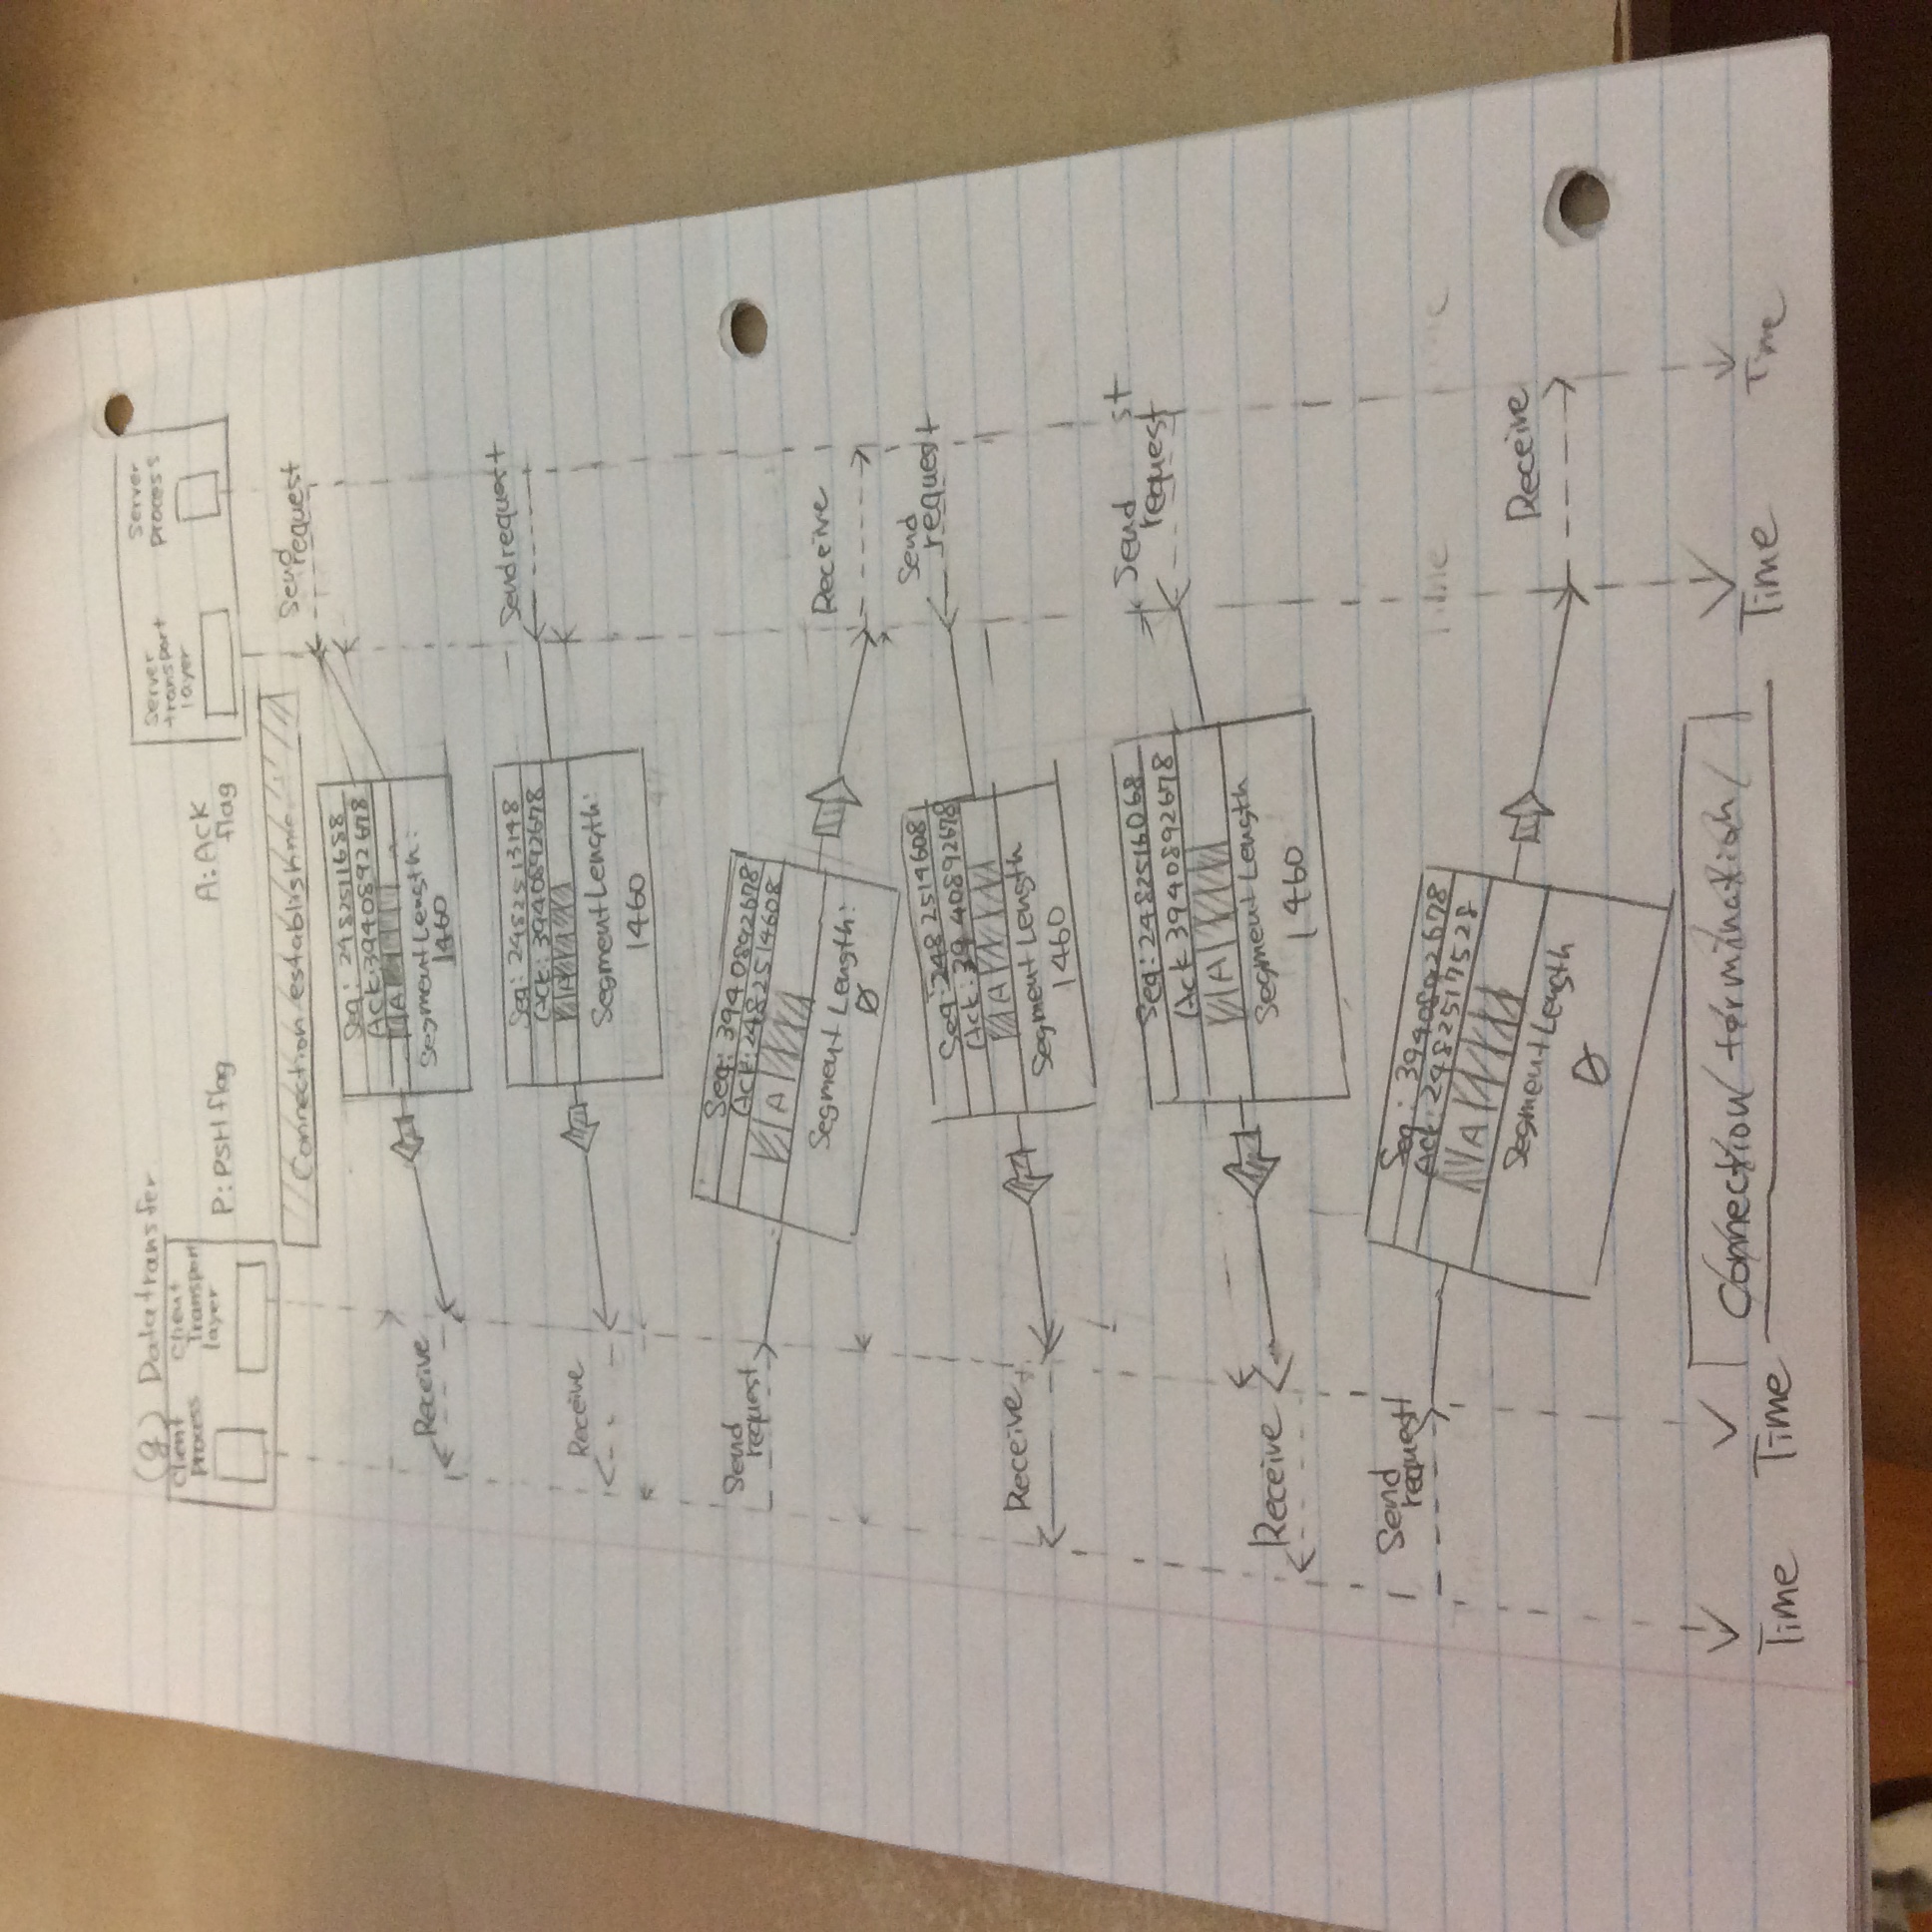 (g) Data transfer
Client
Process
Client
Transport
layer
P: PSH flag
A: Ack
flag
Server
transport
layer
Server
process
Connection establishme
Send
request
Seq: 2482511688
Ack: 3940892678
A
Segment Length:
1460
Receive
Send request
Seq: 2482513148
Ack: 3940892678
A
Segment Length:
1460
Receive
Send
request
Seq: 3940892678
Ack: 2482514608
A
Segment Length:
0
Receive
Send
request
Seq: 2482514608
Ack: 3940892678
A
Segment Length
1460
Receive
Send
request
st
Seq: 2482516068
Ack 3940892678
A
Segment Length
1460
Receive
Send
request
Seq: 3940892678
Ack: 2482517528
A
Segment Length
0
Receive
Time
Connection termination
Time
Time
Time
Time